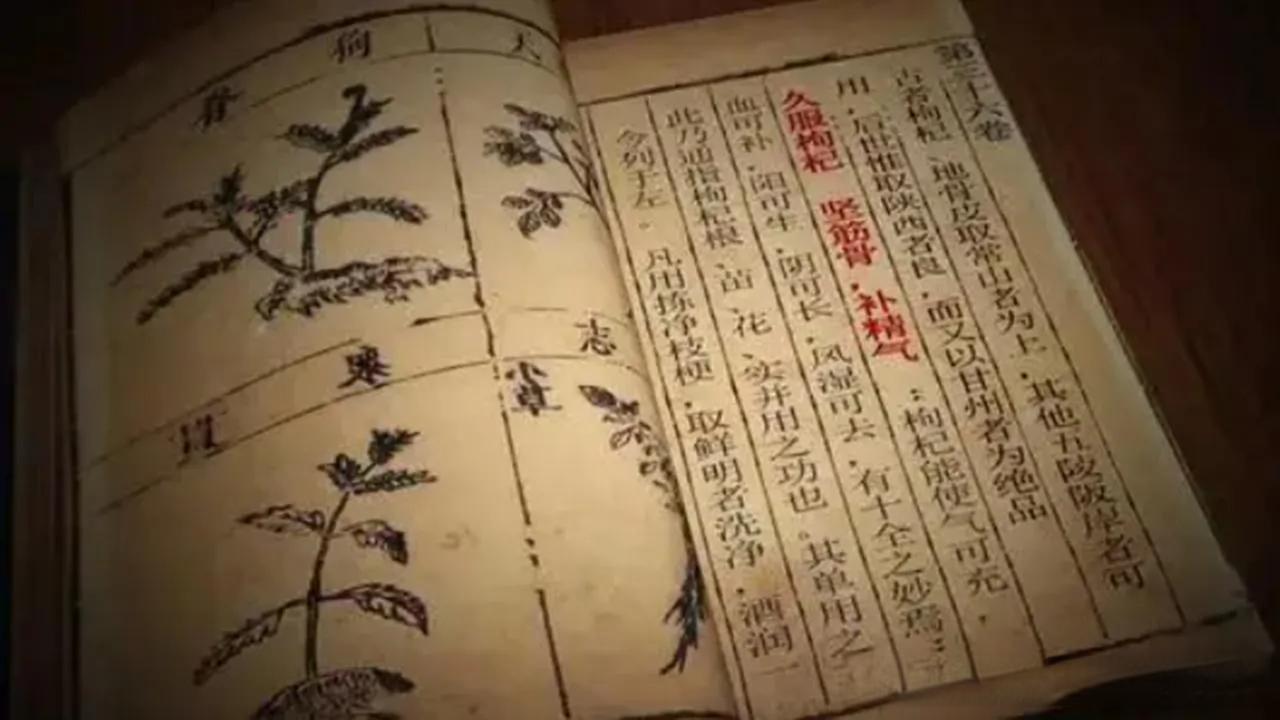 第三十六卷
古者枸杞、地骨皮取常山者为上，其他五陵阪岸者可
用，后世惟取陕西者良，而又以甘州者为绝品
久服枸杞 坚筋骨，补精气：枸杞能使气可充，
血可补，阳可生，阴可长，风湿可去，有十全之妙焉：
此乃通指枸杞根、苗、花、实并用之功也。其单用之
今列于左。 凡用拣净枝梗，取鲜明者洗净，酒润一
天
狗
脊
志
小草